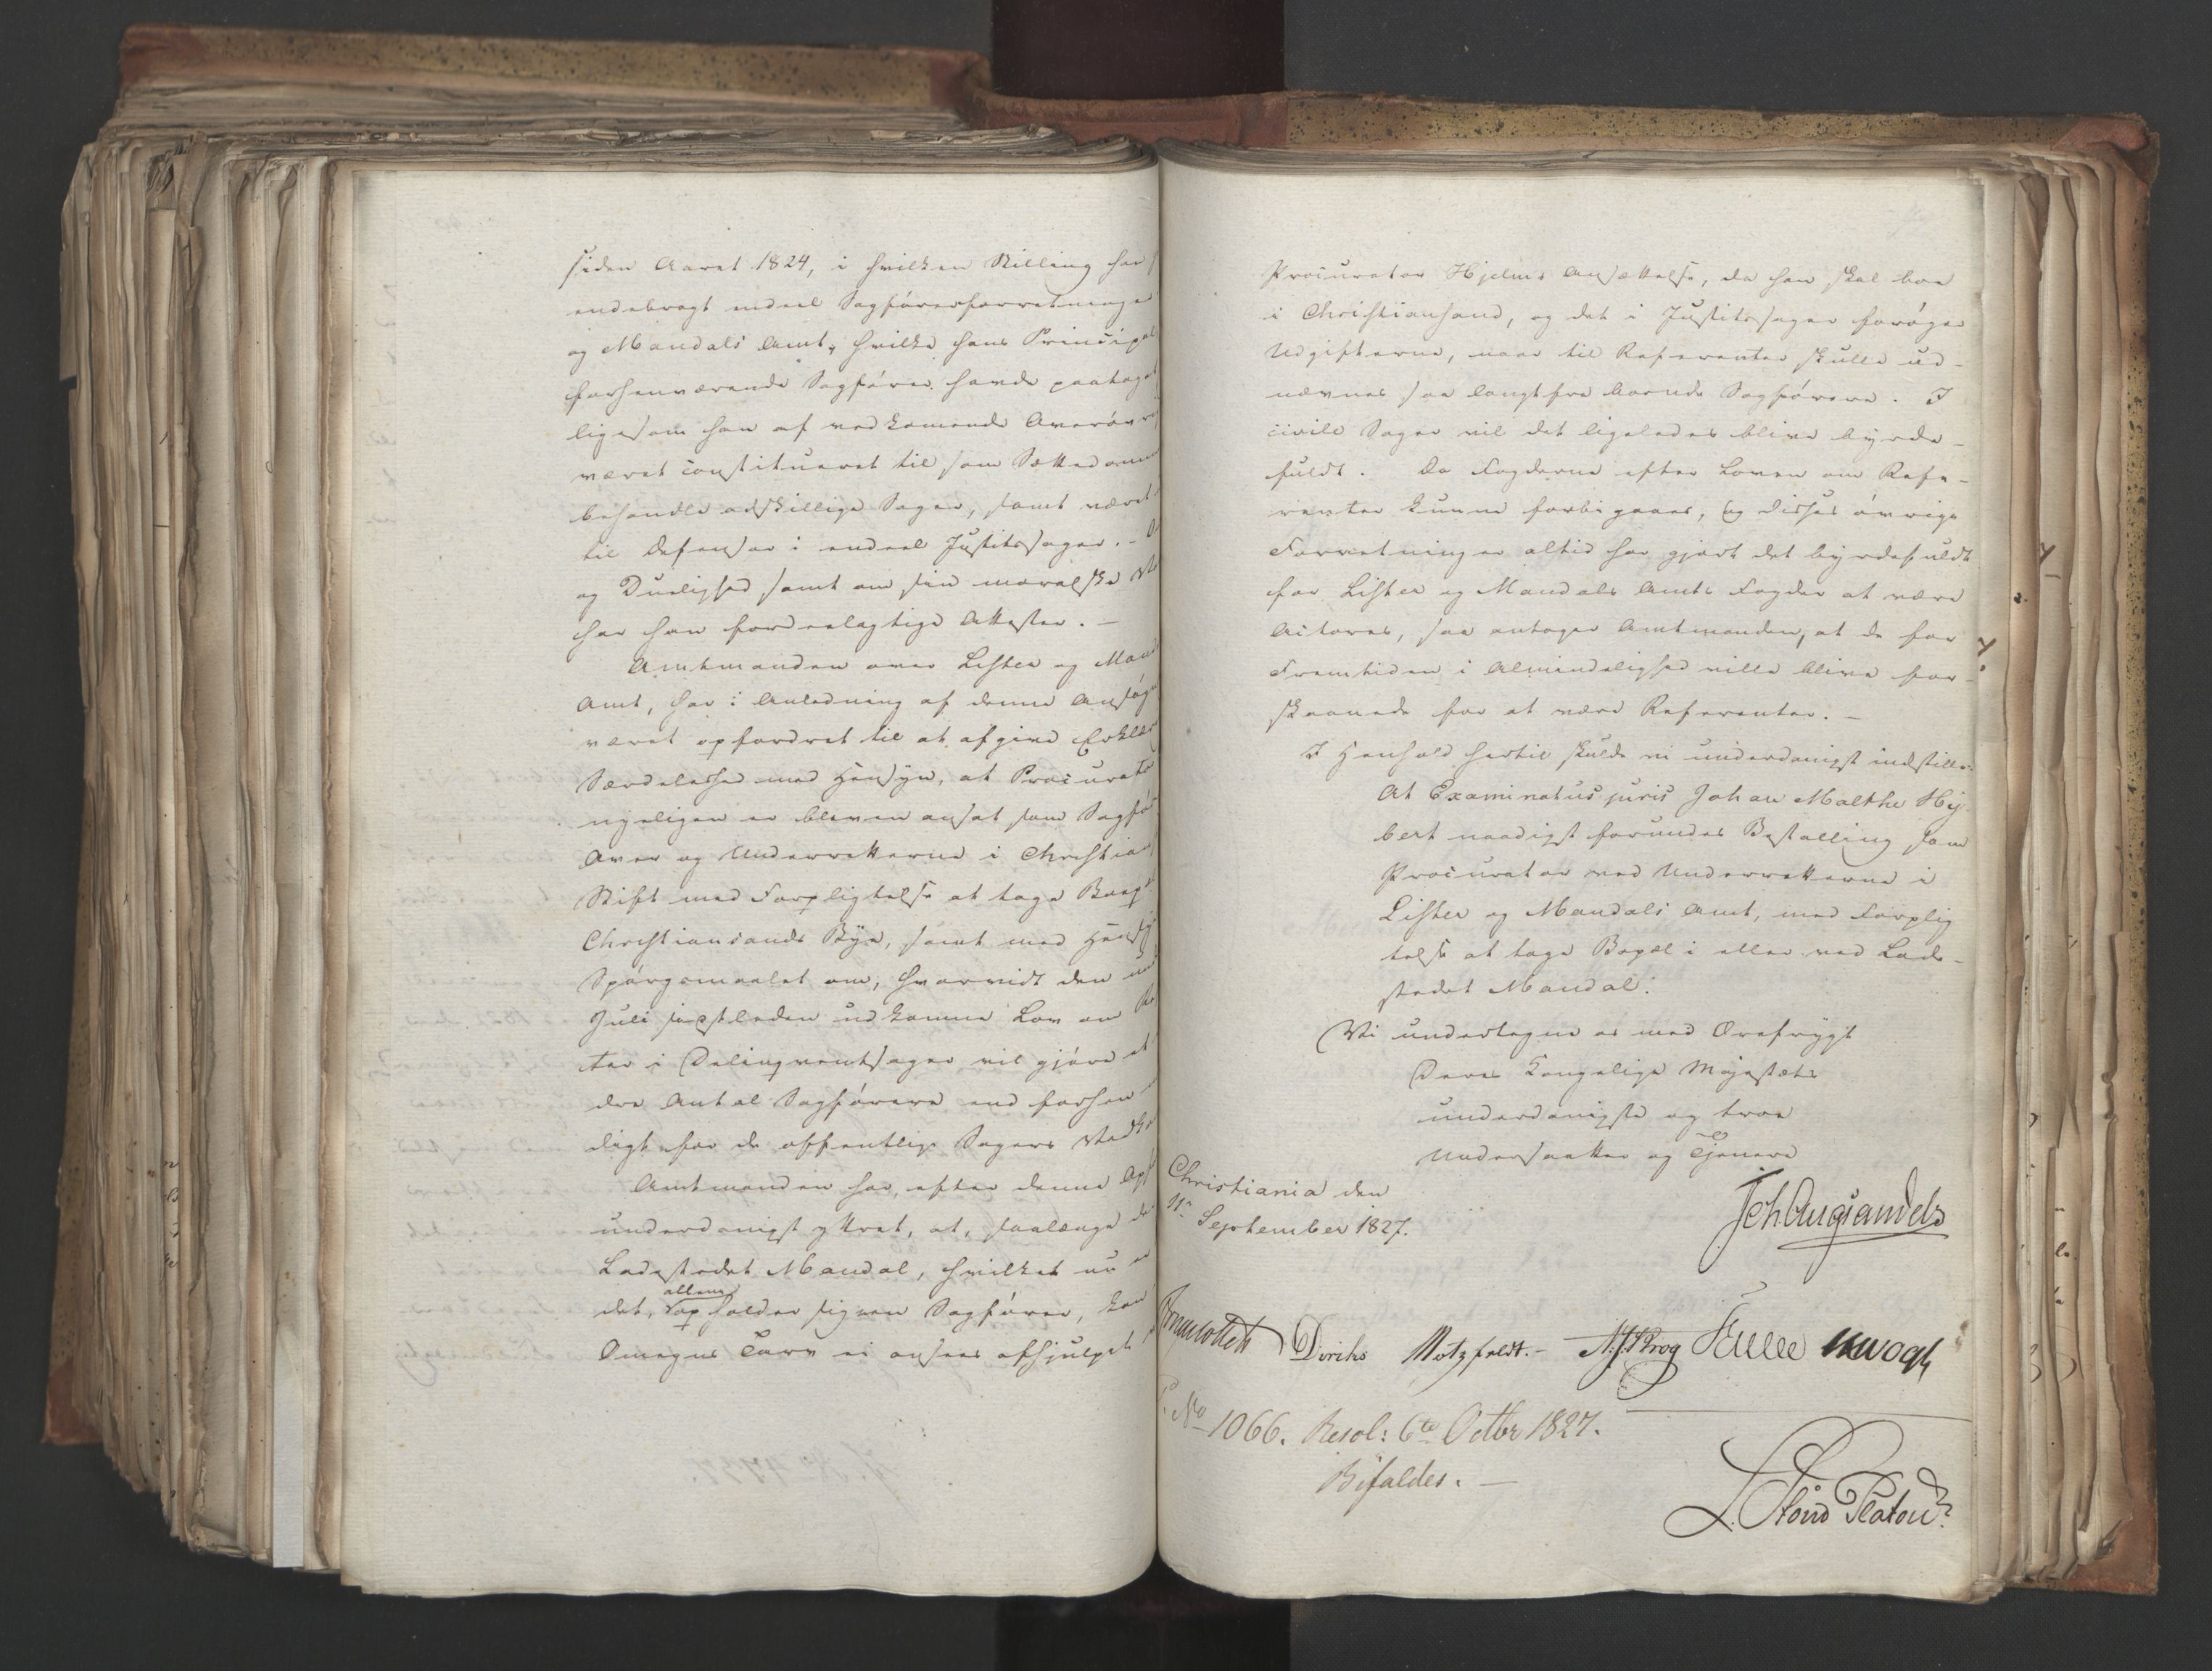 siden Aaret 1824, i hvilken Stilling han
endebragt endeel Sagførerforretninger
og Mandals Amt, hvilke hans Principal
forhenværende Sagfører havde paataget
ligesom han af vedkomende Øverøvr
været constitueret til som Sættedomm
behandle adskillige Sager, samt været
til Defensor i endeel Justitssager. -
og Duelighed samt om sin moralske
har han fordeelagtige Attester. -
Amtmanden over Lister og Mand
Amt, har i Anledning af denne Ansøgn
været opfordret til at afgive Erklær
Særdeleshed med Hensyn, at Procurator
nyeligen er bleven ansat som Sagfør
Over og Underretterne i Christian
Stift med Forpligtelse at tage Boep
Christiansands Bye, samt med Hensy
Spørgsmaalet om, hvorvidt den
Juli sidstleden udkomne Lov om Re
ter i Delinqventsager vil gjøre et
dre Antal Sagførere end forhen
digt for de offentlige Sagers
Amtmanden har, efter denne Opf
underdanigst yttret, at, saalænge
Ladestedet Mandal, hvilket nu
det, allene opholder sig een Sagfører, kan
Omegns Tarv ei ansees afhjulpet
Procurator Hjelms Ansættelse, da han skal boe
i Christiansand, og det i Justitssager forøger
Udgifterne, naar til Referenter skulle ud-
nævnes saa langt fra boende Sagførere. I
civile Sager vil det ligeledes blive byrde-
fuldt. Da Fogderne efter Loven om Refe-
renter kunne forbigaaes, og disses øvrige
Forretninger altid har gjort det byrdefuldt
for Lister og Mandals Amts Fogder at være
Actores, saa antager Amtmanden, at de for
Fremtiden i Almindelighed ville blive for-
skaanede for at være Referenter. -
I Henhold hertil skulde vi underdanigst indstille:
At Examinatus juris Johan Malthe Hy-
bert naadigst forundes Bestalling som
Procurator ved Underretterne i
Lister og Mandals Amt, med Forplig
telse at tage Bopæl i eller ved Lade-
stedet Mandal.
Vi undertegne os med Ærefrygt
Deres Kongelige Majestæts
underdanigste og troe
Undersaatter og Tjenere
Christiania den
11te September 1827.
Joh Aug Sandels
Jonas Collett Diriks Motzfeldt. - N.J.Krog Fasting
No 1066. Resol: 6te Octbr 1827.
Bifaldes. -
L. Stoud Platou